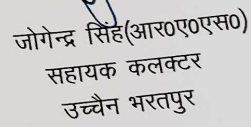 जोगेन्द्र सिंह(आर०ए०एस०)
सहायक कलक्टर
उच्चैन भरतपुर